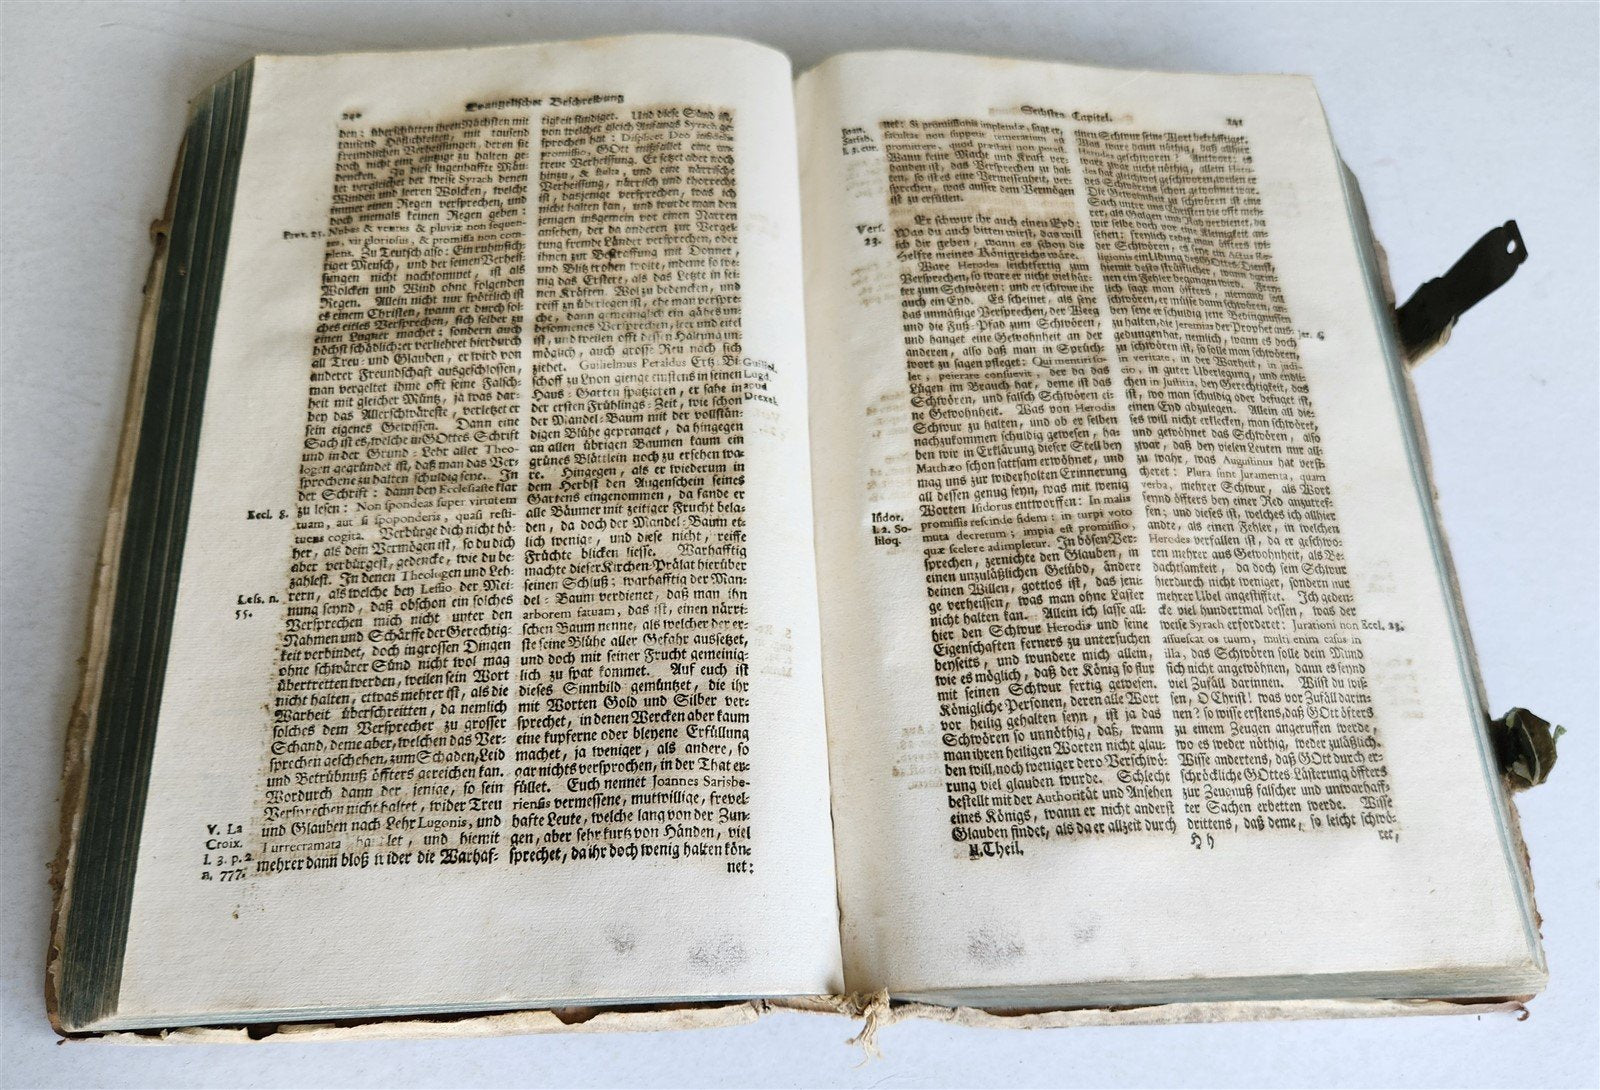 240
Evangelischer Beschreibung
den: überschütten ihren Nächsten mit
tausend Höflichkeiten, mit tausend
freundlichen Verheissungen, deren sie
doch nicht eine eintzige zu halten ge-
dencken. In diese lugenhaffte Mäu-
ler vergleichet der weise Syrach denen
Winden und leeren Wolcken, welche
immer einen Regen versprechen, und
doch niemals keinen Regen geben:
Prov. 25. Nubes & ventus & pluviæ non sequen-
tes, vir gloriosus, & promissa non com-
plens. Zu Teutsch also: Ein ruhmsich-
tiger Mensch, und der seinen Verheis-
sungen nicht nachkommet, ist als
Wolcken und Wind ohne folgenden
Regen. Allein nicht nur spöttlich ist
es einem Christen, wann er durch sol-
ches eitles Versprechen, sich selber zu
einen Lugner machet: sondern auch
höchst schädlich: er verliehret hierdurch
all Treu und Glauben, er wird von
anderer Freundschaft ausgeschlossen,
man vergeltet ihme offt seine Falsch-
heit mit gleicher Müntz, ja was dar-
bey das Allerschwäreste, verletzet er
sein eigenes Gewissen. Dann eine
Sach ist es, welche in GOttes Schrift
und in der Grund-Lehr aller Theo-
logen gegründet ist, daß man das Ver-
sprochene zu halten schuldig seye. In
der Schrift: dann bey Ecclesiaste klar
Eccl. 8. zu lesen: Non spondeas super virtutem
tuam, aut si spoponderis, quasi resti-
tuens cogita. Verbürge dich nicht hö-
her, als dein Vermögen ist, so du dich
aber verbürgest, gedencke, wie du be-
zahlest. In denen Theologen und Leh-
Less. n. rern, als welche bey Lessio der Mei-
55. nung seynd, daß obschon ein solches
Versprechen mich nicht unter den
Nahmen und Schärffe der Gerechtig-
keit verbindet, doch in grossen Dingen
ohne schwärer Sünd nicht wol mag
übertretten werden, weilen sein Wort
nicht halten, etwas mehrer ist, als die
Warheit überschreitten, da nemlich
solches dem Versprecher zu grosser
Schand, deme aber, welchen das Ver-
sprechen geschehen, zum Schaden, Leid
und Betrübnuß öffters gereichen kan.
Wordurch dann der jenige, so sein
Versprechen nicht haltet, wider Treu
V. La und Glauben nach Lehr Lugonis, und
Croix. Turrecramata handlet, und hiemit
l. 3. p. 2. mehrer dann bloß wider die Warhaf-
n. 777.
tigkeit sündiget. Und diese Sünd ist,
von welcher gleich Anfangs Syrach ge-
sprochen hat: Displicet Deo infidelis
promissio, GOtt mißfallet eine un-
treue Verheissung. Er setzet aber noch
hinzu, & stulta, und eine närrische
Verheissung, närrisch und thorrecht
ist, dasjenige versprechen, was ich
nicht halten kan, und wurde man den
jenigen insgemein vor einen Narren
ansehen, der da anderen zur Vergel-
tung fremde Länder versprechen, oder
ihnen zur Bestraffung mit Donner,
und Blitz trohen wolte, indeme so we-
nig das Erstere, als das Letzte in sei-
nen Kräften. Wol zu bedencken, und
reiff zu überlegen ist, ehe man verspre-
che, dann gemeiniglich ein gähes un-
besonnenes Versprechen, leer und eitel
ist, und weilen offt dessen Haltung un-
möglich, auch grosse Reu nach sich
ziehet. Guilielmus Peraldus Ertz-Bi-
schoff zu Lyon gienge einstens in seinen
Haus-Garten spatzieren, er sahe in
der ersten Frühlings-Zeit, wie schon
der Mandel-Baum mit der vollstän-
digen Blühe gepranget, da hingegen
an allen übrigen Bäumen kaum ein
grünes Blättlein noch zu ersehen wa-
re. Hingegen, als er wiederum in
dem Herbst den Augenschein seines
Gartens eingenommen, da fande er
alle Bäumer mit zeitiger Frucht bela-
den, da doch der Mandel-Baum et-
lich wenig, und diese nicht, reiffe
Früchte blicken liesse. Warhafftig
machte dieser Kirchen-Prälat hierüber
seinen Schluß; warhafftig der Man-
del-Baum verdienet, daß man ihn
arborem fatuam, das ist, einen närri-
schen Baum nenne, als welcher der er-
ste seine Blühe aller Gefahr aussetzet,
und doch mit seiner Frucht gemeinig-
lich zu spat kommet. Auf euch ist
dieses Sinnbild gemüntzet, die ihr
mit Worten Gold und Silber ver-
sprechet, in denen Wercken aber kaum
eine kupferne oder bleyene Erfüllung
machet, ja weniger, als andere, so
gar nichts versprochen, in der That er-
füllet. Euch nennet Joannes Sarisbe-
riensis vermessene, mutwillige, frevel-
hafte Leute, welche lang von der Zun-
gen, aber sehr kurtz von Händen, viel
sprechet, da ihr doch wenig halten kön-
net:
Guiliel.
Lugd.
apud
Drexel.
Sechstes Capitel.
241
Joan. net: Si promissionis implendæ, sagt er,
Sarisb. facultas non suppetit temerarium est
l. 3. cur. promittere, quod præstari non possit.
Wann keine Macht und Kraft ver-
handen ist, das Versprechen zu hal-
ten, so ist es eine Vermessenheit, ver-
sprechen, was ausser dem Vermögen
ist zu erfüllen.
Vers. Er schwur ihr auch einen Eyd:
23. Was du auch bitten wirst, das will
ich dir geben, wann es schon die
Helfte meines Königreichs wäre.
Ware Herodes leichtfertig zum
Versprechen, so ware er nicht viel här-
ter zum Schwören: und er schwur ihr
auch ein Eyd. Es scheinet, als seye
das unmäßige Versprechen, der Weeg
und die Fuß-Pfad zum Schwören,
und hanget eine Gewohnheit an der
anderen, also daß man in Sprüch-
wort zu sagen pfleget: Qui mentiri so-
let, pejerare consuevit, der da das
Lügen im Brauch hat, deme ist das
Schwören, und falsch Schwören ei-
ne Gewohnheit. Was von Herodis
Schwur zu halten, und ob er selben
nachzukommen schuldig gewesen, ha-
ben wir in Erklärung dieser Stell bey
Matthæo schon sattsam erwöhnet, und
mag uns zur widerholten Erinnerung
all dessen genug seyn, was mit wenig
Isidor. Worten Isidorus entworffen: In malis
l. 2. So- promissis rescinde fidem: in turpi voto
liloq. muta decretum; impia est promissio,
quæ scelere adimpletur. In bösen Ver-
sprechen, zernichte den Glauben, in
einen unzuläßlichen Gelübd, ändere
deinen Willen, gottlos ist, das jeni-
ge verheissen, was man ohne Laster
nicht halten kan. Allein ich lasse all-
hier den Schwur Herodis und seine
Eigenschaften ferners zu untersuchen
beyseits, und wundere mich allein,
wie es möglich, daß der König so flux
mit seinen Schwur fertig gewesen.
Königliche Personen, deren alle Wort
vor heilig gehalten seyn, ist ja das
Schwören so unnöthig, daß, wann
man ihren heiligen Worten nicht glau-
ben will, noch weniger dero Verschwö-
rung viel glauben wurde. Schlecht
bestellt mit der Authorität und Ansehen
eines Königs, wann er nicht anderst
Glauben findet, als da er allzeit durch
II. Theil.
einen Schwur seine Wort bekräfftiget.
Was ware dann nöthig, daß allhier
Herodes geschworen? Antwort: es
ware zwar nicht nöthig, allein Hero-
des hat gleichwol geschworen, weilen er
des Schwörens schon gewohnet war.
Die Gewohnheit zu schwören ist eine
Sach unter uns Christen die offt meh-
rer, als Galgen und Rad verdienet, da
wir selbe doch nur vor eine Kleinigkeit an-
sehen;
hiemit desto sträfflicher, wann darin-
nen ein Fehler begangen wird. Frey-
lich sagt man öffters, niemand soll
schwören, er müsse dann schwören, und
ben jene er schuldig jene Bedingnussen
zu halten, die Jeremias der Prophet aus-
gedungen hat, nemlich, wann es doch Jer. 4.
zu schwören ist, so solle man schwören,
in veritate, in der Warheit, in judi-
cio, in guter Uberlegung, und endli-
chen in Justitia, bey Gerechtigkeit, das
ist, wo man schuldig oder befuget ist,
einen Eyd abzulegen. Allein all die-
ses will nicht erklecken, man schwöret,
und gewöhnet das Schwören, also
zwar, daß bey vielen Leuten nur all-
zu wahr, was Augustinus hat versi-
cheret: Plura sunt Juramenta, quam
verba, mehrer Schwur, als Wort
seynd öffters bey einer Red anzutref-
fen; und dieses ist, welches ich allhier
andte, als einen Fehler, in welchen
Herodes verfallen ist, da er geschwo-
ren mehrer aus Gewohnheit, als Be-
dachtsamkeit, da doch sein Schwur
hierdurch nicht weniger, sondern nur
mehrer Ubel angestifftet. Ich geden-
cke viel hundertmal dessen, was der
weise Syrach erforderet: Jurationi non Eccl. 23.
assuescat os tuum, multi enim casus in
illa, das Schwören solle dein Mund
sich nicht angewöhnen, dann es seynd
viel Zufäll darinnen. Wilst du wis-
sen, O Christ! was vor Zufäll darin-
nen? so wisse erstens, daß GOtt öffters
zu einem Zeugen angeruffen werde,
wo es weder nöthig, weder zuläßlich.
Wisse andertens, daß GOtt durch er-
schröckliche GOttes Lästerung öffters
zur Zeugnuß falscher und unwarhaff-
ter Sachen erbetten werde. Wisse
drittens, daß deme, so leicht schwö-
Hh
ret,